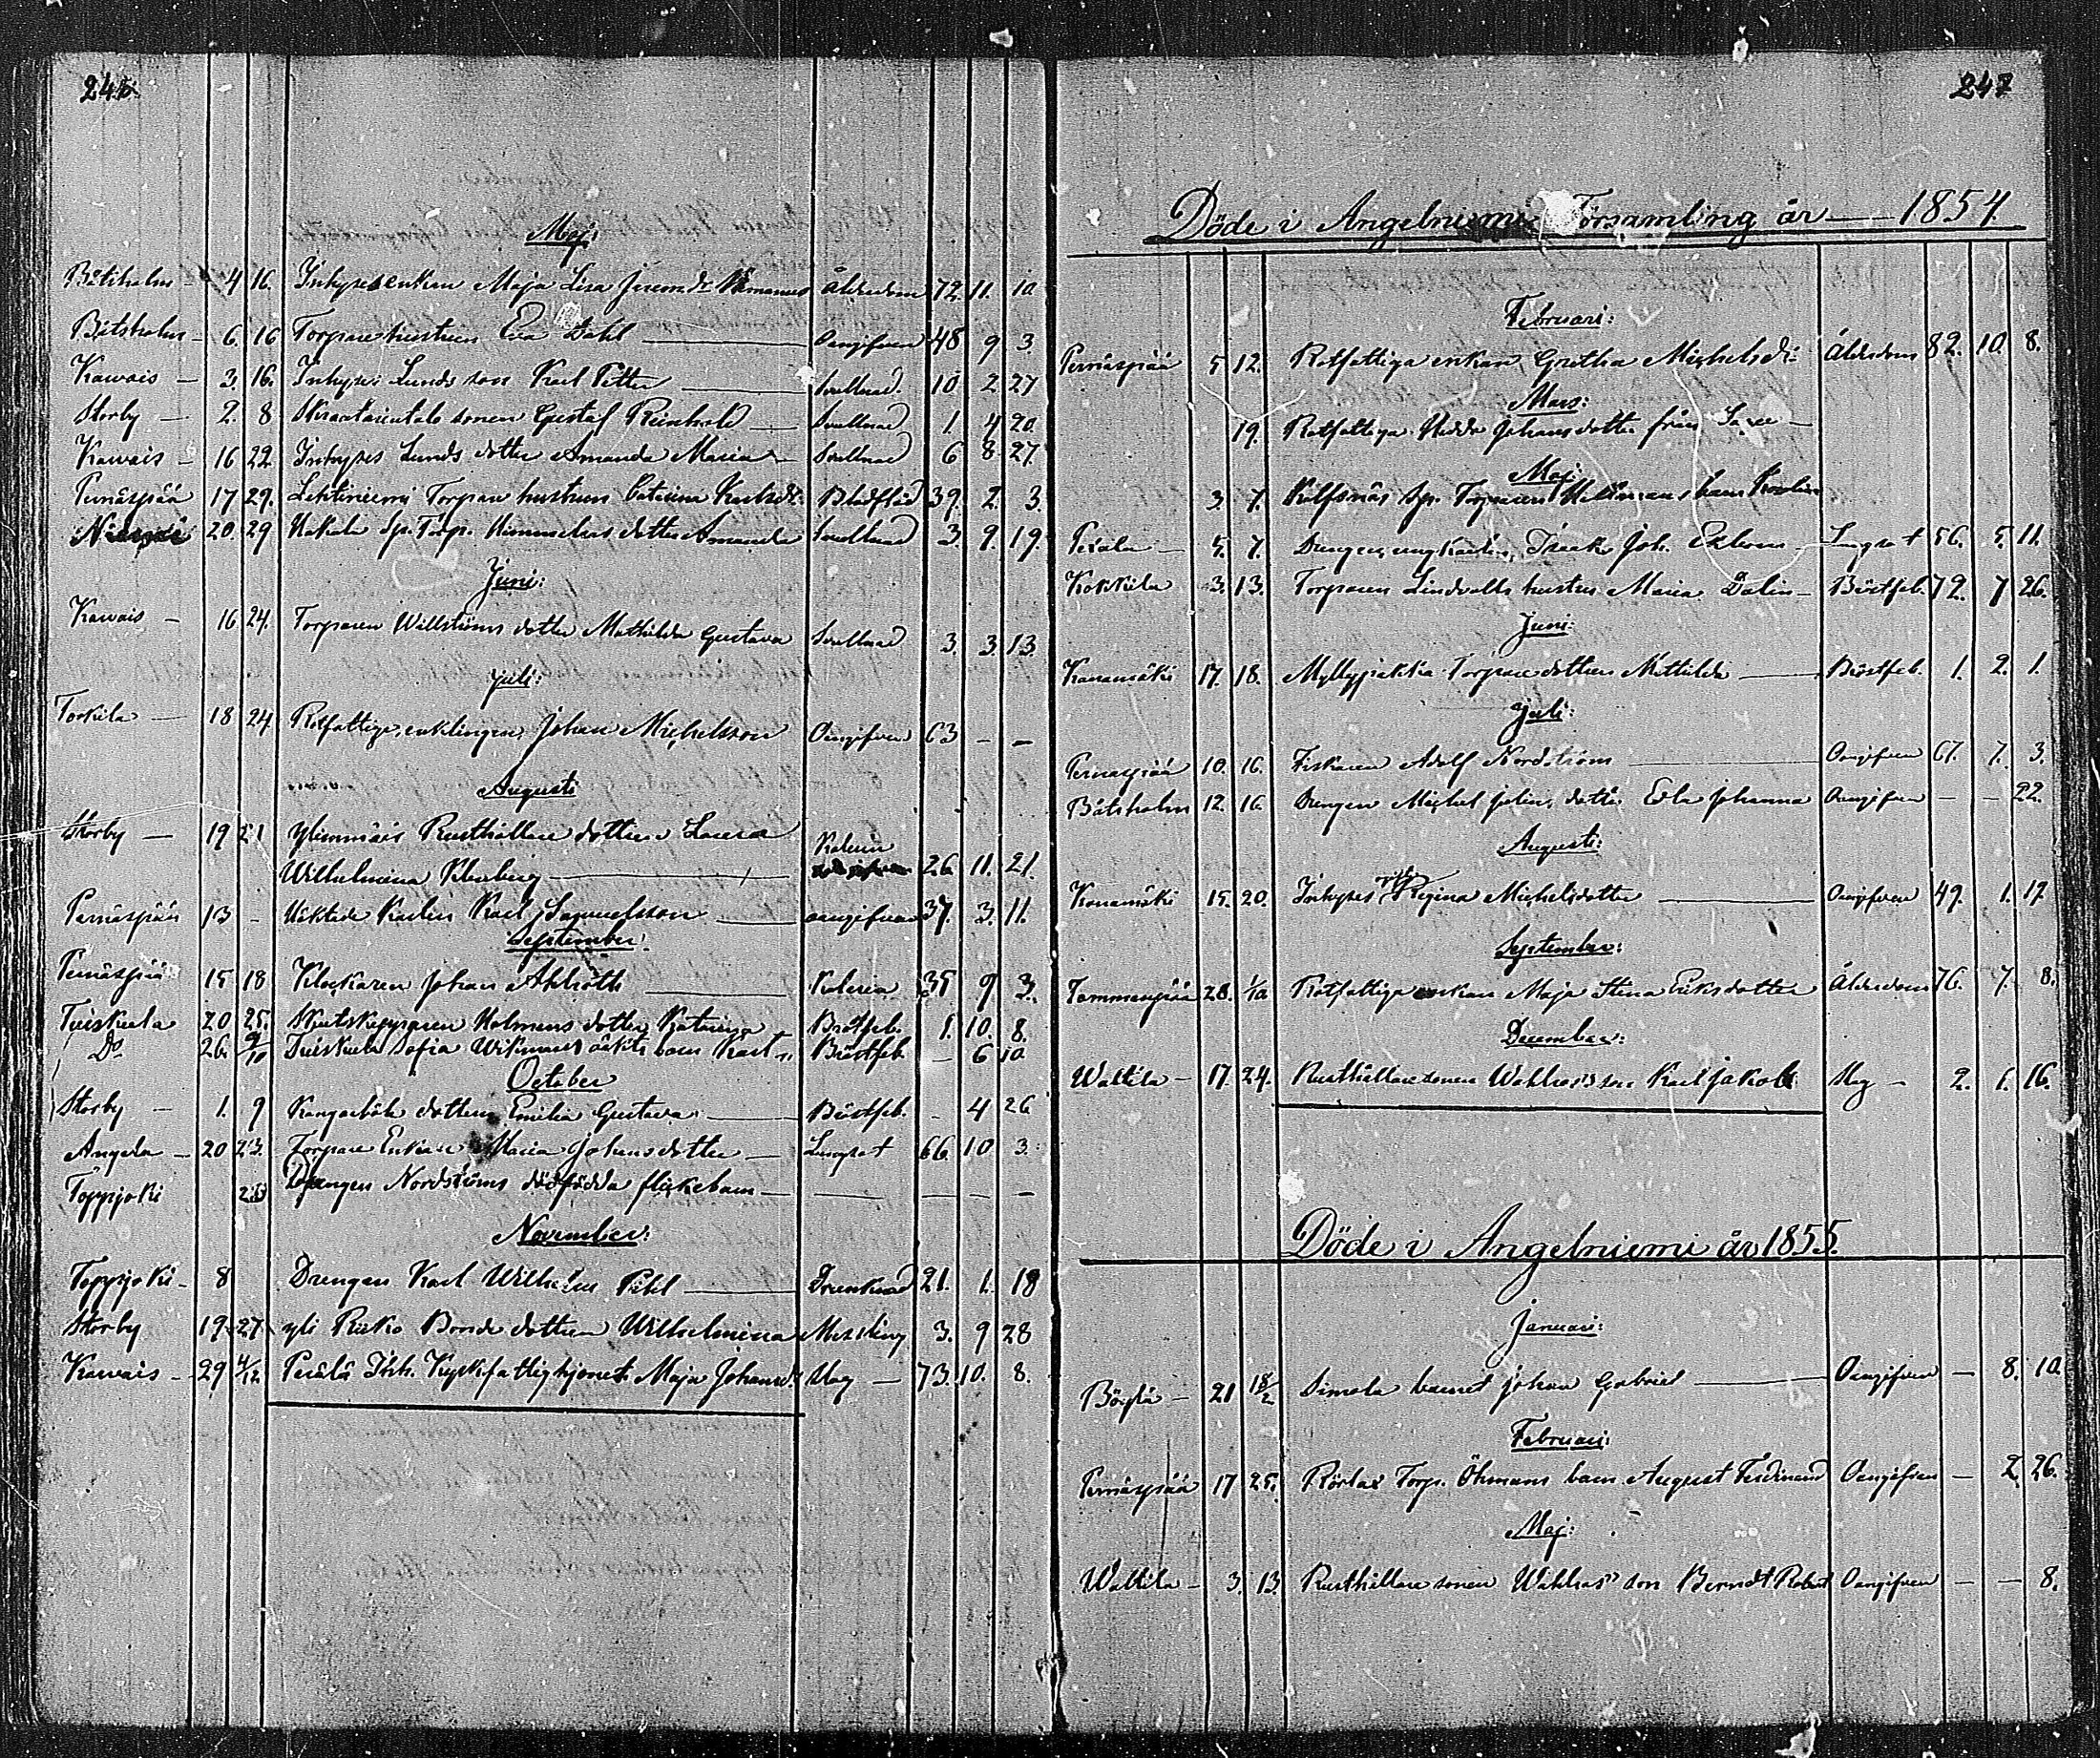 246.
Maj:
Båtsholm - 4 16. Inhysesenkan Maja Lisa Jerem.dr Ålderdom 72. 11. 10.
Båtsholm - 6. 16 Torparehustrun Eva Dahl Oangifven 48 9 3.
Kawais - 3. 16. Inhyses Lunds son Karl Petter Svullnad 10 2 27
Storby - 2. 8 sonen Gustaf Reinhold Svullnad 1. 4 20.
Kawais - 16 22. Inhyses Lunds dotter Amanda Maria Svullnad 6 8 27.
Pernäspää 17 29. Lehtiniemi Torpare hustrun Catarina Karlsdr. 39. 2. 3.
20. 29 Hakala Sp. Torp. dotter Amanda Svullnad 3. 9. 19.
Juni:
Kawais - 16 24. Torparen Willströms dotter Mathilda Gustava Svullnad 3. 3. 13.
Juli:
Torkila - 18 24 Rotfattige enklingen Johan Michelsson Oangifven 63 - -
Augusti
Storby - 19 21 Ylinmäis Rusthållare dottern Laura
Wilhelmina Kolerin 26. 11. 21.
Pernäspää 13 - Karlen Karl Samuelsson oangifven 37. 3. 11.
September:
Pernäspää 15 18 Klockaren Johan Ahlroth Koleria 35 9 3.
Tuiskula 20 25. Skutskepparen Holmens dotter Katarina Bröstfeb. 1. 10. 8.
Do 26. 9/10 Tuiskula Sofia Wikmans oäkta barn Bröstfeb. - 6 10
October
Storby - 1. 9 dottern Emilia Gustava Bröstfeb. - 4 26
Angela - 20 23. Torpare Enkan Maria Johansdotter Lungsot 66. 10 3.
Toppjoki 28 Drengen Nordströms dödfödda flickebarn - - - -
November:
Toppjoki - 8 Drengen Karl Wilhelm Pihl Drunknad 21. 1. 18
Storby 19. 27. yli Risko Bonde dottern Wilhelmina Messling 3. 9 28
Kawais - 29 4/12. Perälä Inh. Maja Johansdr. Slag - 73. 10. 8.
247
Döde i Angelniemi Församling år 1854.
Februari:
Pernäspää 5 12. Rotfattiga enkan Gretha Michelsdr. Ålderdom 82. 10. 8.
Mars:
19. Rotfattiga Hedda Johansdotter från
Maj:
3. 7. Kalfsnäs Sp. Torparen barn
Peräla - 5. 7. Drengen, ungkarlen, Isaak Joh. Ekbom Lungsot 56. 5. 11.
Kokkila 3. 13. Torparen Lindvalls hustru Maria Dalin Bröstfeb. 72. 7 26.
Juni:
Kanamäki 17. 18. Myllypakka Torpare dottern Mathilda Bröstfeb. 1. 2. 1.
Juli:
Pernäspää 10. 16. Fiskaren Adolf Nordström Oangifven 67. 7. 3.
Båtsholm 12. 16. Drengen Michel dotter Eva Johanna Oangifven - - 22.
Augusti:
Kanamäki 15. 20. Inhyses Regina Michelsdotter Oangifven 49. 1. 17.
September:
Tammenpää 28. 1/10 Rotfattiga enkan Maja Stina Eriksdotter Ålderdom 76. 7. 8.
December:
Waltila - 17. 24. Rusthållaresonen Wahlroos son Karl Jakob Slag - 2. 1. 16.
Döde i Angelniemi år 1855.
Januari:
Böylä - 21 18/2 Simola barnet Johan Gabriel Oangifven - 8. 10.
Februari:
Pernäspää 17 25. Rörlax Torp. Öhmans barn August Ferdinand Oangifven - 2. 26.
Maj:
Waltila - 3. 13 Rusthållare sonen Wahlroos' son Berndt Robert Oangifven - - 8.